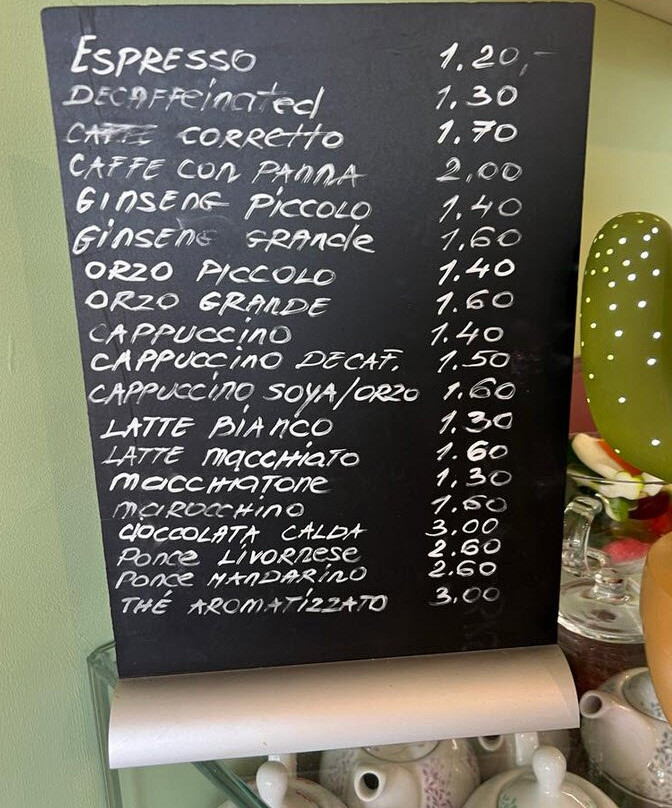 ESPRESSO 1.20,-
DECAFFeinated 1.30
CAFFE CORRetto 1.70
CAFFE CON PANNA 2,00
GINSENG PICCOLO 1.40
GINSENG GRANde 1.60
ORZO PICCOLO 1.40
ORZO GRANDE 1.60
CAPPUCCINO 1.40
CAPPUCCINO DECAF. 1.50
CAPPUCCINO SOYA/ORZO 1.60
LATTE BIANCO 1.30
LATTE MACCHIATO 1.60
MACCHIATONE 1.30
MAROCCHINO 1.60
CIOCCOLATA CALDA 3.00
PONCE LIVORNESE 2.60
PONCE MANDARINO 2.60
THÉ AROMATIZZATO 3.00